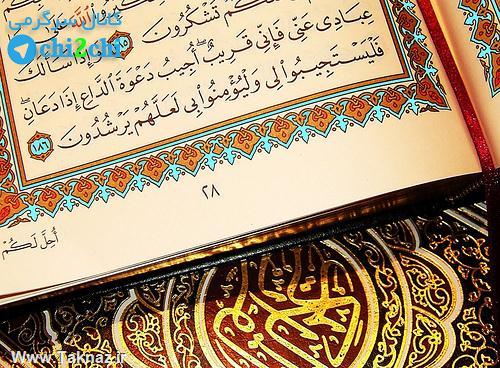 کانال سرگرمی
chi2chi
تَشْكُرُونَ ١٨٥ وَإِذَا سَأَلَكَ
عِبَادِي عَنِّي فَإِنِّي قَرِيبٌ أُجِيبُ دَعْوَةَ الدَّاعِ إِذَا دَعَانِ
فَلْيَسْتَجِيبُوا لِي وَلْيُؤْمِنُوا بِي لَعَلَّهُمْ يَرْشُدُونَ ١٨٦
٢٨
أُحِلَّ لَكُمْ
Www.Taknaz.ir